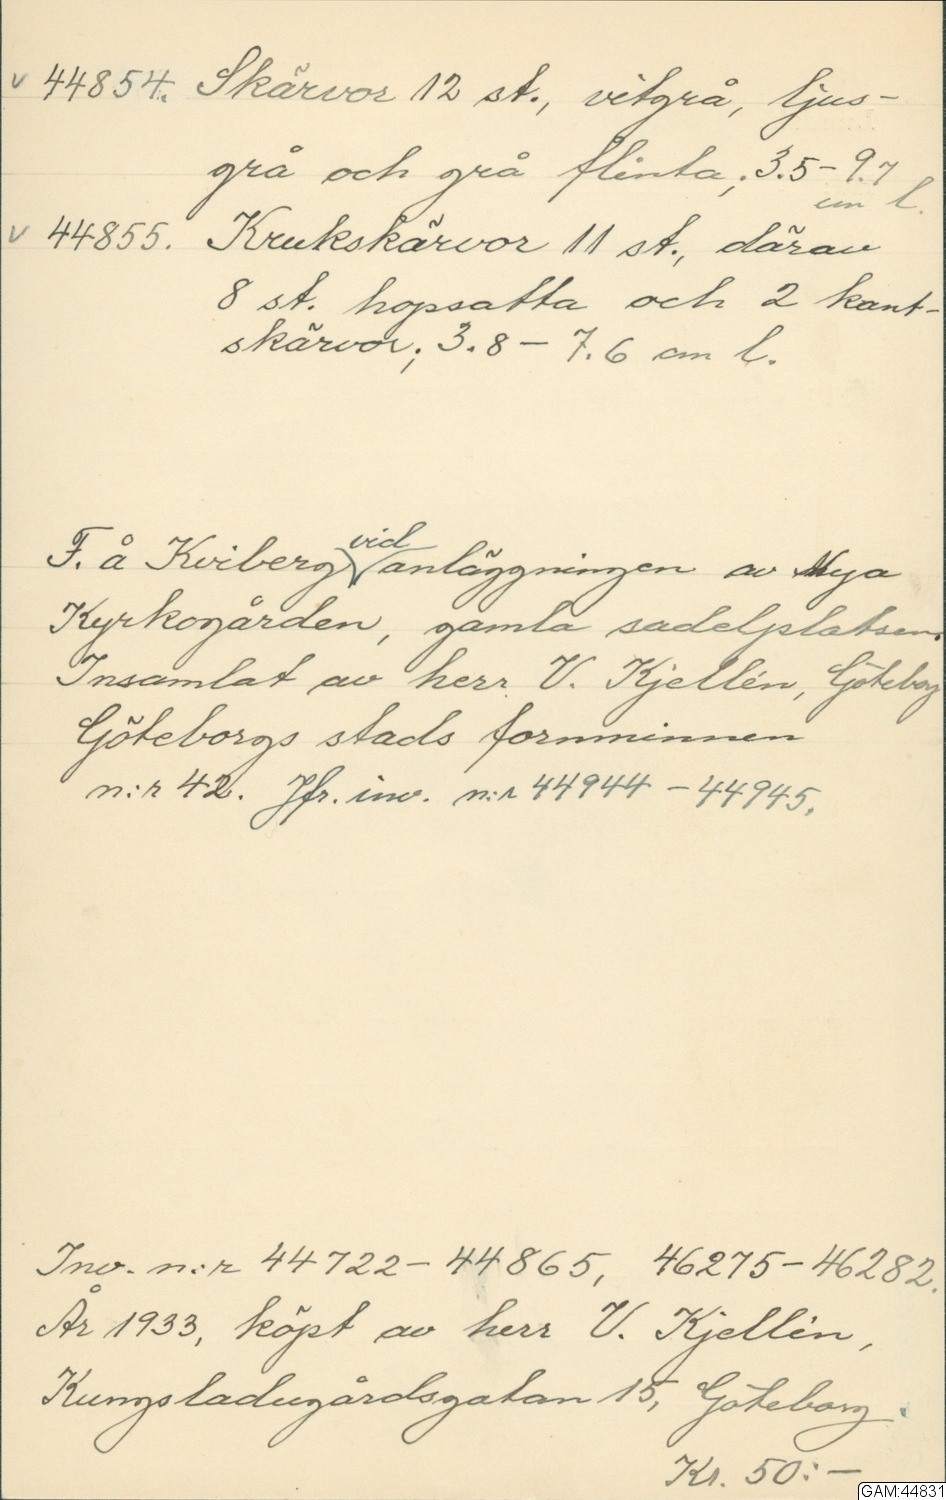 v 44854. Skärvor 12 st., vitgrå, ljus-
grå och grå flinta; 3.5 – 9.7
cm l.
v 44855. Krukskärvor 11 st., därav
8 st. hopsatta och 2 kant-
skärvor; 3.8 – 7.6 cm l.
F. å Kviberg vid anläggningen av Nya
Kyrkogården, gamla sadelplatsen.
Insamlat av herr V. Kjellén, Göteborg
Göteborgs stads fornminnen
n:r 42. Jfr. inv. n:r 44944 – 44945.
Inv. n:r 44722 – 44865, 46275 – 46282.
År 1933, köpt av herr V. Kjellén,
Kungsladugårdsgatan 15, Göteborg.
Kr. 50:–
GAM:44831